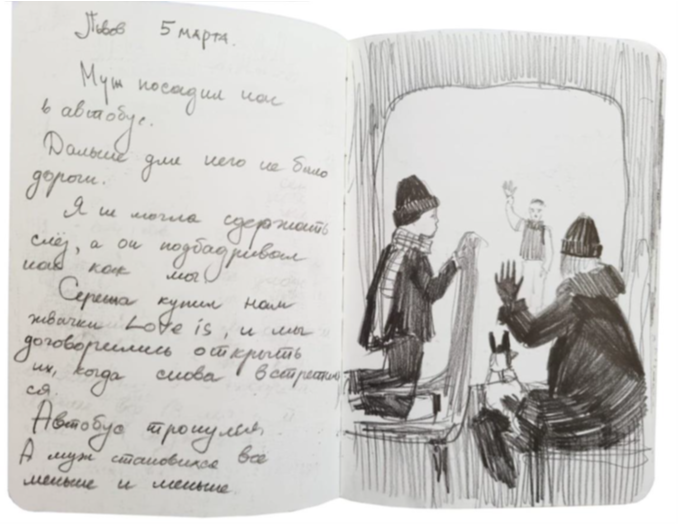 Львов 5 марта.
Муж посадил нас
в автобус.
Дальше для него не было
дороги.
Я не могла сдержать
слёз, а он подбадривал
нас как мог.
Сережа купил нам
жвачки Love is, и мы
договорились открыть
их, когда снова встретим
ся.
Автобус тронулся.
А муж становился все
меньше и меньше.